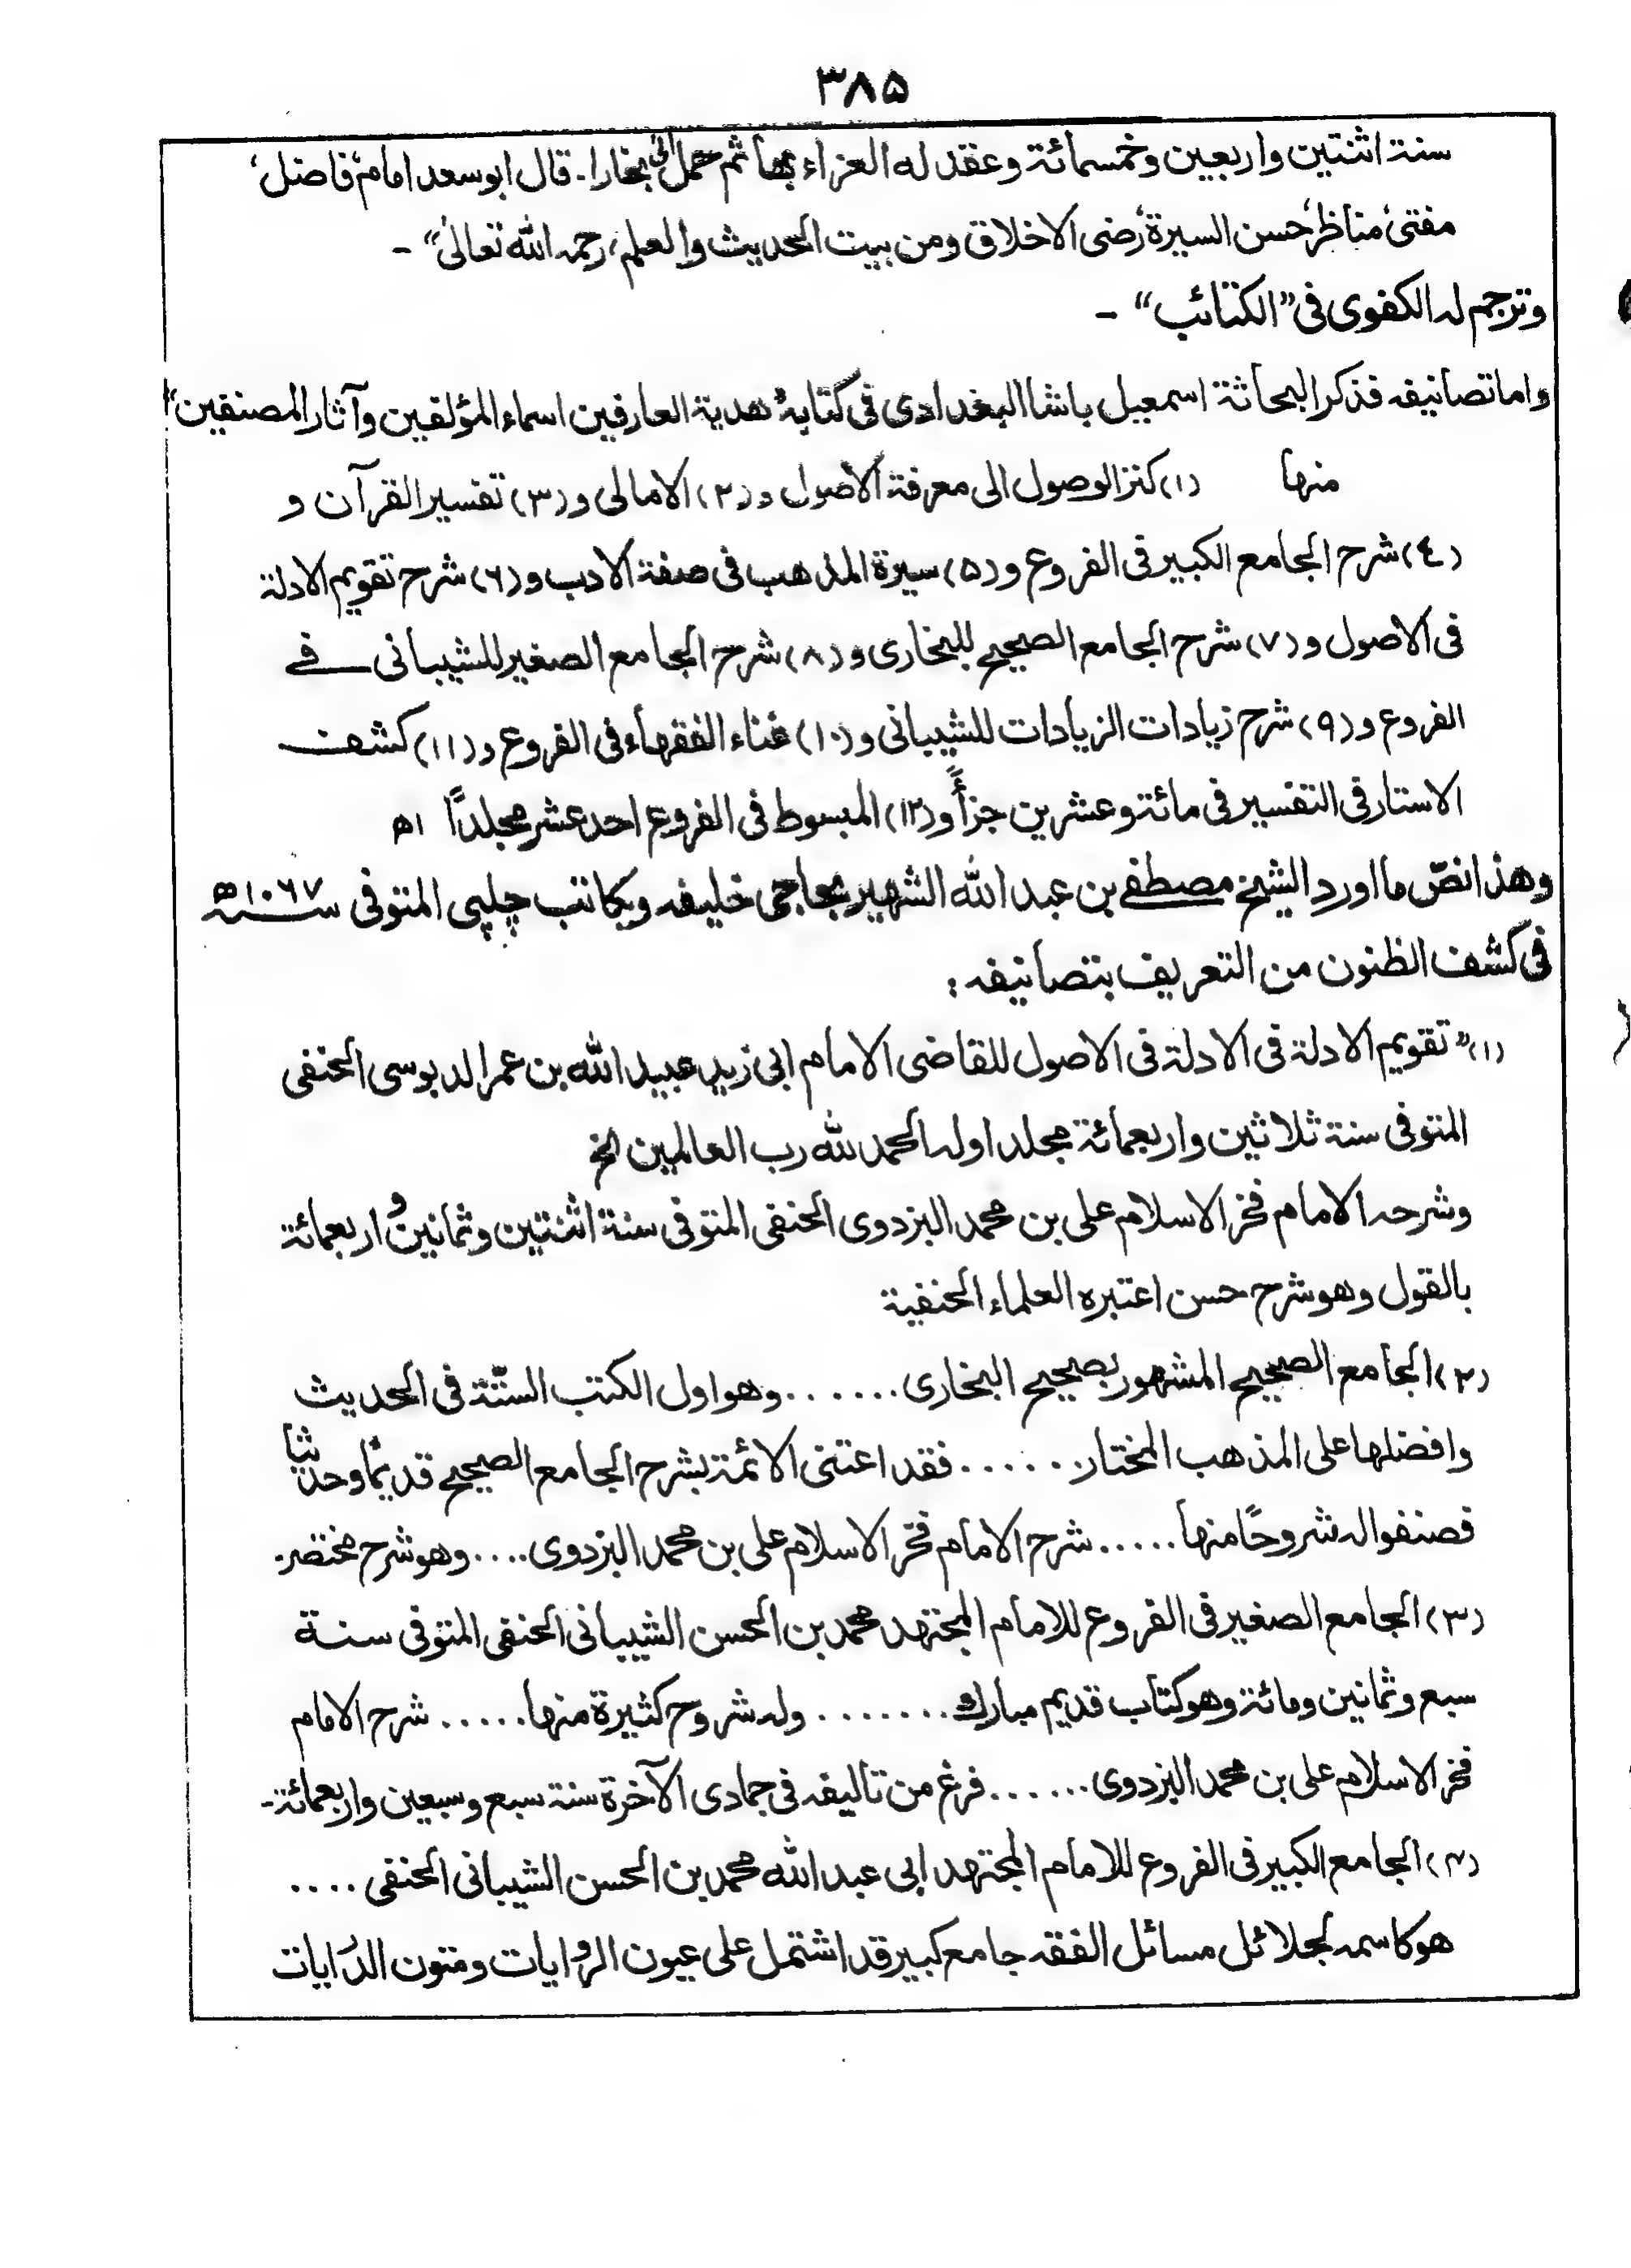 ٣٨٥
سنة اثنتين واربعين وخمسمائة وعقد له العزاء بها ثم حمل الى بخارا. قال ابو سعد امام، فاضل،
مفتى، مناظر، حسن السيرة، رضى الاخلاق ومن بيت الحديث والعلم، رحمه الله تعالىٰ“ -
وترجم له الكفوى فى ”الكتائب“ -
واما تصانيفه فذكر البحاثة اسمعيل باشا البغدادى فى كتابه ”هدية العارفين اسماء المؤلفين وآثار المصنفين“
منها (١) كنز الوصول الى معرفة الاصول و (٢) الامالى و (٣) تفسير القرآن و
(٤) شرح الجامع الكبير فى الفروع و (٥) سيرة المذهب فى صفة الادب و (٦) شرح تقويم الادلة
فى الاصول و (٧) شرح الجامع الصحيح للبخارى و (٨) شرح الجامع الصغير للشيبانى فے
الفروع و (٩) شرح زيادات الزيادات للشيبانى و (١٠) غناء الفقهاء فى الفروع و (١١) كشف
الاستار فى التفسير فى مائة وعشرين جزأً و (١٢) المبسوط فى الفروع احد عشر مجلدًا اھ
وهذا نصّ ما اورد الشيخ مصطفے بن عبد الله الشهير بحاجى خليفه وبكاتب چلپى المتوفى سنة ١٠٦٧ھ
فى كشف الظنون من التعريف بتصانيفه :
(١) ”تقويم الادلة فى الادلة فى الاصول للقاضى الامام ابى زيد عبيد الله بن عمر الدبوسى الحنفى
المتوفى سنة ثلاثين واربعمائة مجلد اوله الحمد لله رب العالمين الخ
وشرحه الامام فخر الاسلام على بن محمد البزدوى الحنفى المتوفى سنة اثنتين وثمانين و اربعمائة
بالقول وهو شرح حسن اعتبره العلماء الحنفية
(٢) الجامع الصحيح المشهور بصحيح البخارى ...... وهو اول الكتب الستّة فى الحديث
وافضلها على المذهب المختار ...... فقد اعتنى الائمة بشرح الجامع الصحيح قديمًا وحديثا
فصنفوا له شروحًا منها ..... شرح الامام فخر الاسلام على بن محمد البزدوى .... وهو شرح مختصر.
(٣) الجامع الصغير فى الفروع للامام المجتهد محمد بن الحسن الشيبانى الحنفى المتوفى سنة
سبع وثمانين ومائة وهو كتاب قديم مبارك ....... وله شروح كثيرة منها ..... شرح الامام
فخر الاسلام على بن محمد البزدوى ...... فرغ من تاليفه فى جمادى الآخرة سنة سبع وسبعين واربعمائة-
(۴) الجامع الكبير فى الفروع للامام المجتهد ابى عبد الله محمد بن الحسن الشيبانى الحنفى ....
هو كاسمه لجلائل مسائل الفقه جامع كبير قد اشتمل على عيون الروايات ومتون الدرايات